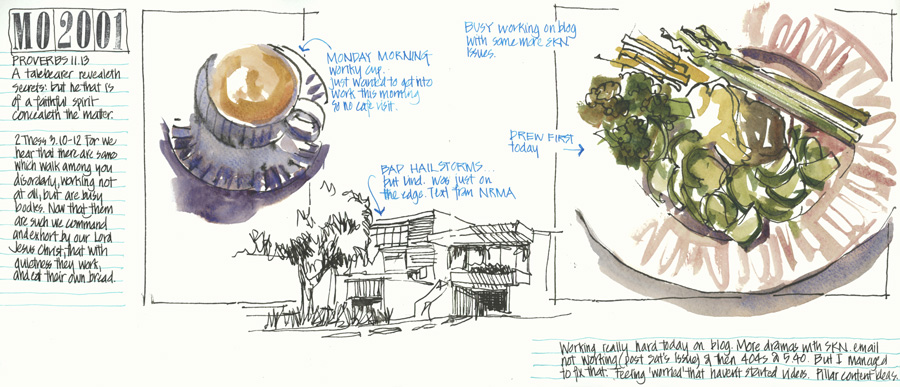 MO2001
PROVERBS 11.13
A talebearer revealeth
secrets: but he that is
of a faithful spirit
concealeth the matter.
2 Thess 3.10-12 For we
hear that there are some
which walk among you
disorderly, working not
at all, but are busy
bodies. Now that them
are such we command
and exhort by our Lord
Jesus Christ, that with
quietness they work,
and eat their own bread.
MONDAY MORNING
worthy cup.
just wanted to get into
work this morning
so no cafe visit.
BUSY working on blog
with some more SKN
issues.
DREW FIRST
today
BAD HAILSTORMS...
but Lind. was just on
the edge. Text from NRMA
Working really hard today on blog. More dramas with SKN. email
not working (post Sat's issue) & then 404s @ 5.40. But I managed
to fix that. Feeling 'worried' that haven't started videos. Pillar content ideas.